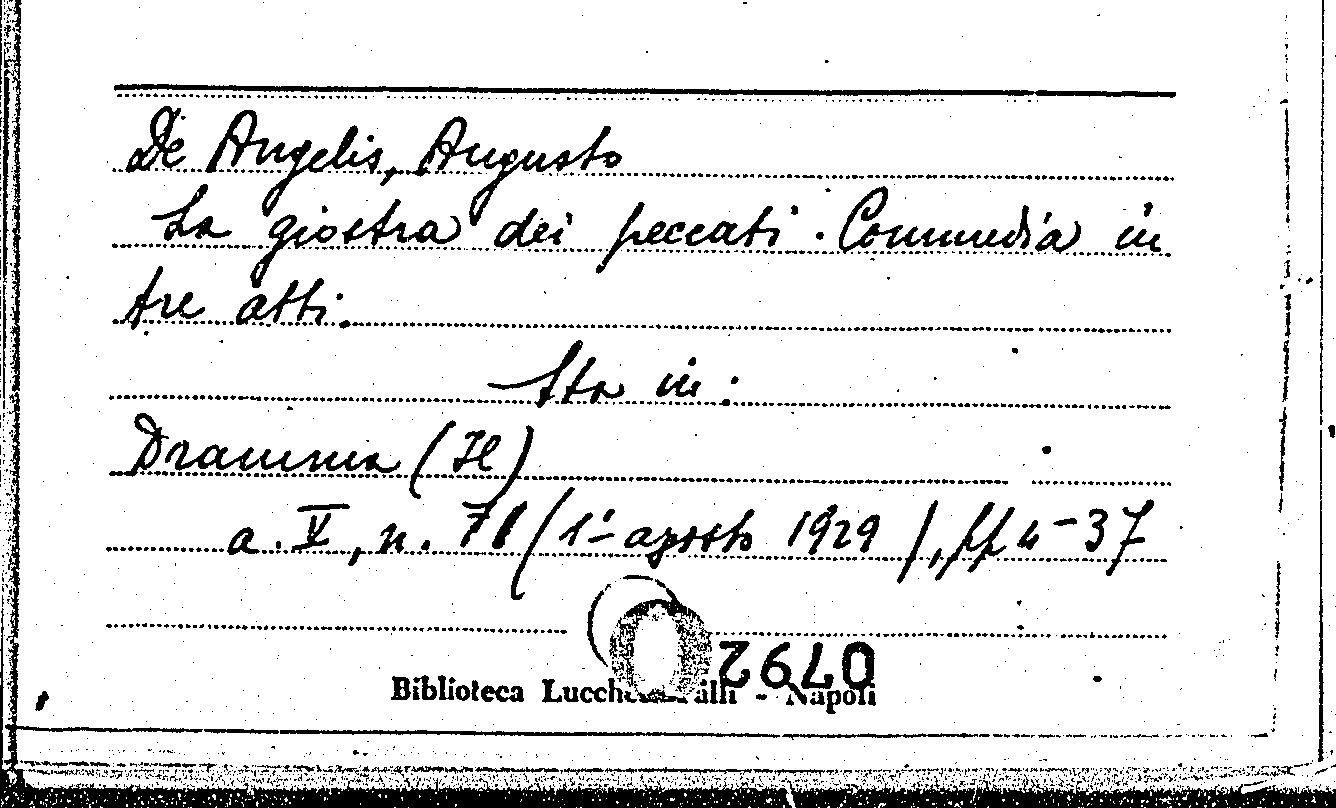 De Angelis, Augusto
La giostra dei peccati. Commedia in
tre atti.
Sta in:
Dramma (Il)
a. V, n. 71 (1° agosto 1929), ff 4-37
0792
Biblioteca - Napoli